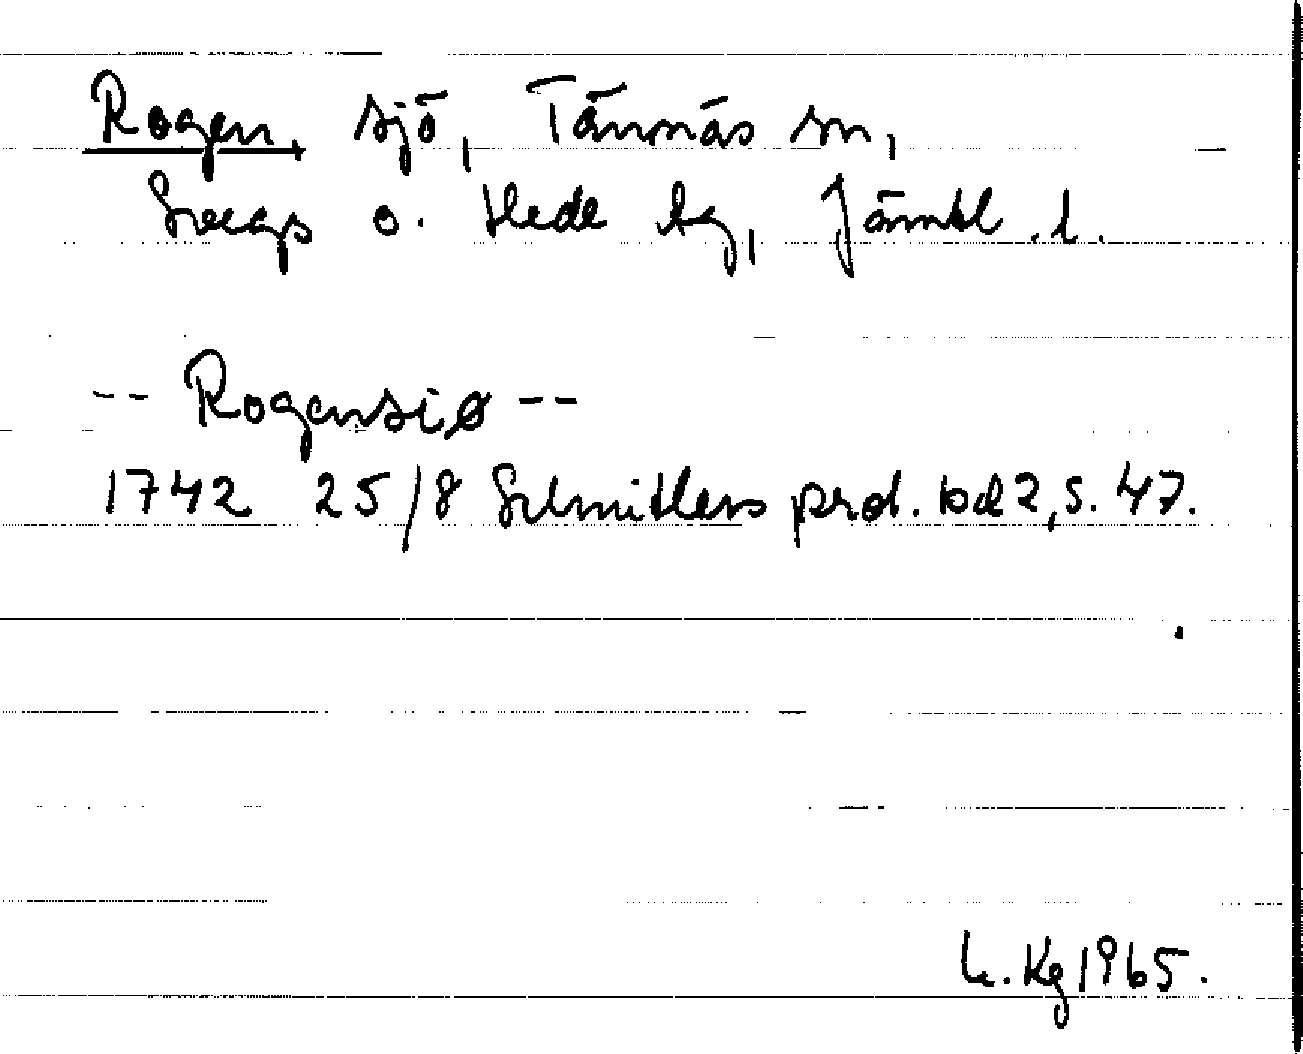 Rogen, sjö, Tännäs sn,
Svegs o. Hede tg, Jämtl. l.
-- Rogensiø --
1742 25/8 Schnitlers prot. bd 2, s. 47.
Kg 1965.